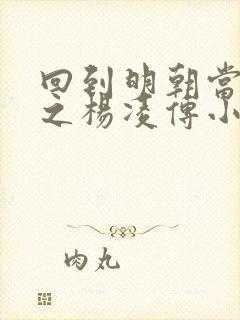 回到明朝當
之楊凌傳小
肉丸